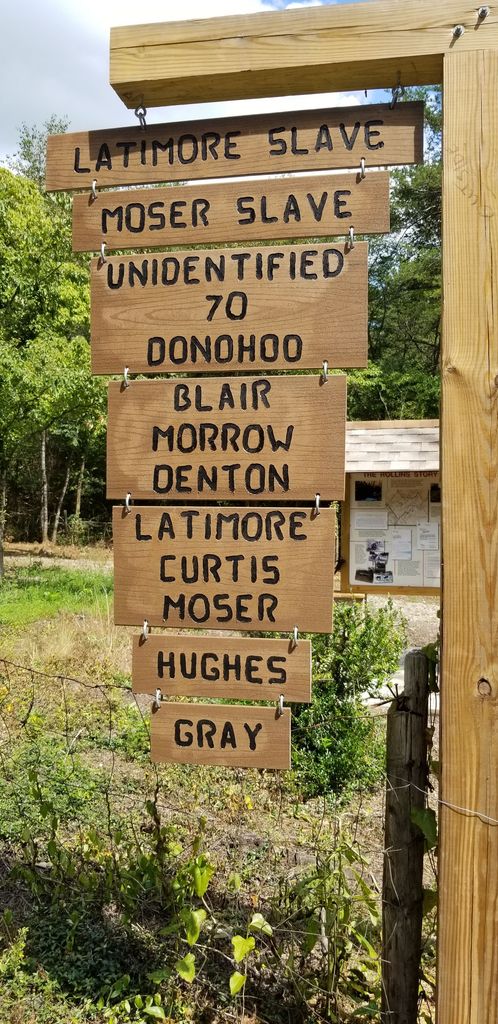 LATIMORE SLAVE
MOSER SLAVE
UNIDENTIFIED
70
DONOHOO
BLAIR
MORROW
DENTON
LATIMORE
CURTIS
MOSER
HUGHES
GRAY
THE HOLLINS STORY